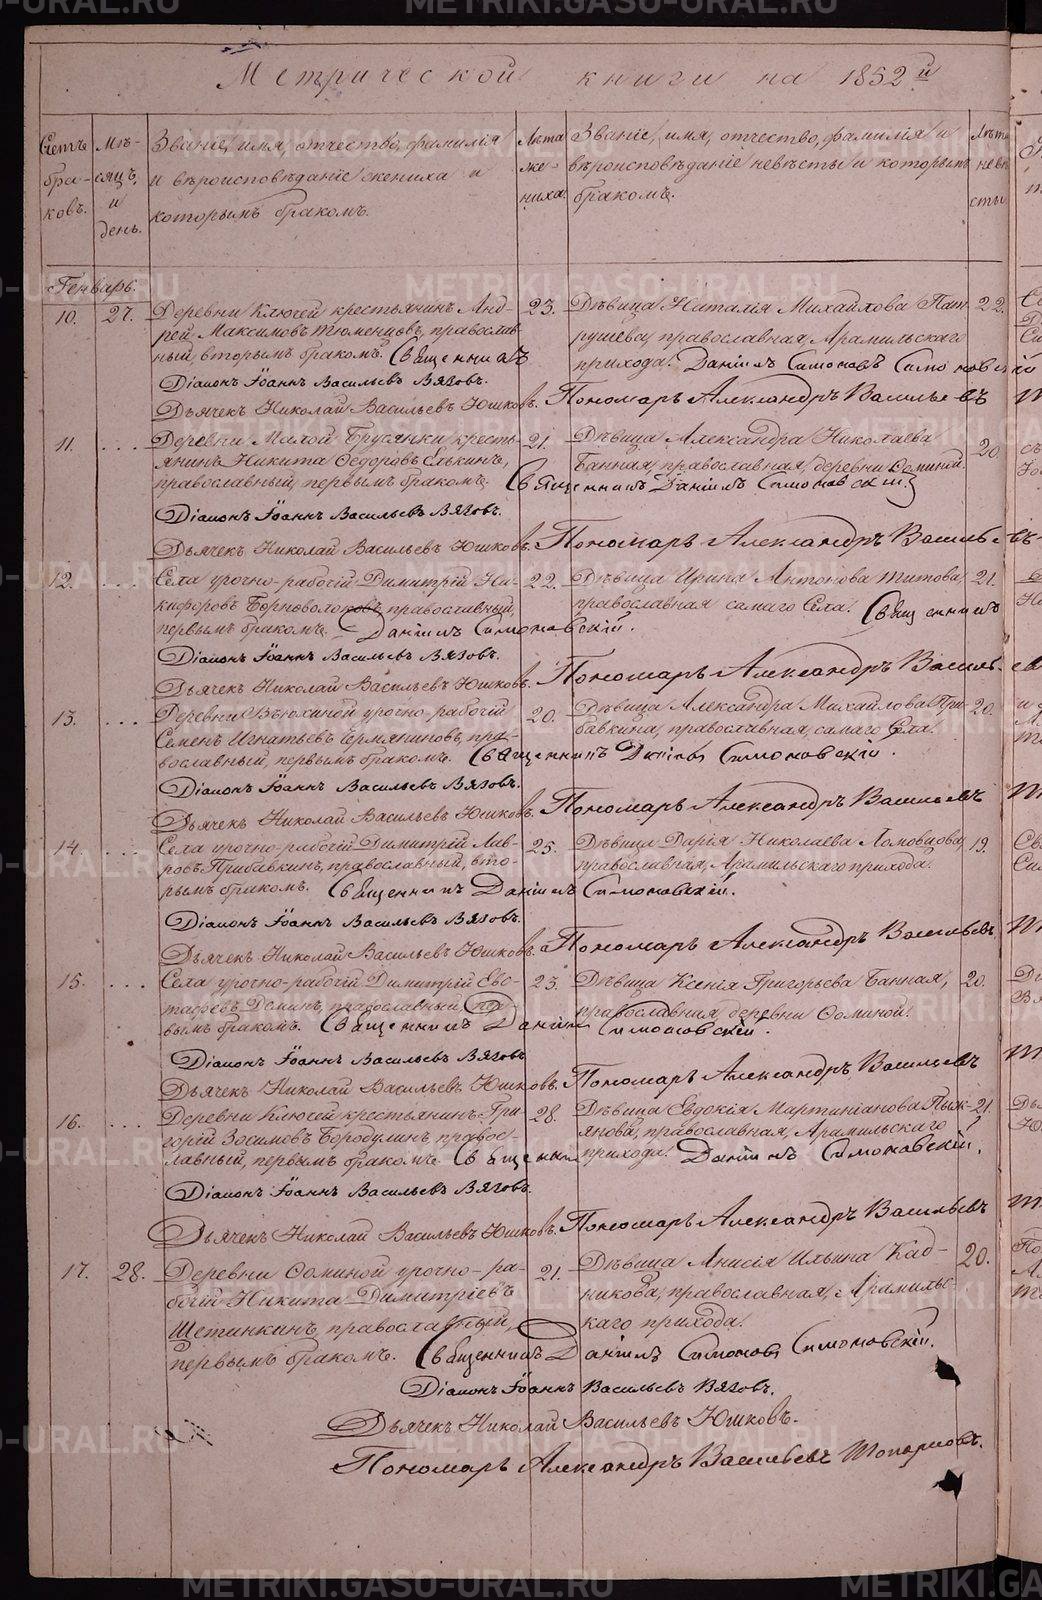 Метрической книги на 1852 й
Счетъ браковъ.
Мѣсяцъ и день.
Званіе, имя, отчество, фамилія
и вѣроисповѣданіе жениха и
которымъ бракомъ.
Лѣта жениха.
Званіе, имя, отчество, фамилія и
вѣроисповѣданіе невѣсты и которымъ
бракомъ.
Лѣта невѣсты
Генварь.
10. 27. Деревни Ключей крестьянинъ Анд- 23. Дѣвица Наталія Михайлова Пат- 22.
рей Максимовъ Тюменцовъ, православ- рушева, православная, Арамильскаго
ный, вторымъ бракомъ. Священникъ прихода. Даніилъ Симоновъ Симоновскій
Діаконъ Іоаннъ Васильевъ Вязовъ.
Дьячекъ Николай Васильевъ Юшковъ. Пономарь Александръ Васильевъ
11. .... Деревни Малой Брусянки кресть- 21. Дѣвица Александра Николаева 20.
янинъ Никита Ѳедоровъ Елькинъ, Банная, православная, деревни Ѳоминой.
православный, первымъ бракомъ. Священникъ Даніилъ Симоновскій
Діаконъ Іоаннъ Васильевъ Вязовъ.
Дьячекъ Николай Васильевъ Юшковъ. Пономарь Александръ Васильевъ
12. .... Села урочно-рабочій Димитрій Ни- 22. Дѣвица Ирина Антонова Титова, 21.
кифоровъ православный, православная самаго Села. Священникъ
первымъ бракомъ. Даніилъ Симоновскій.
Діаконъ Іоаннъ Васильевъ Вязовъ.
Дьячекъ Николай Васильевъ Юшковъ. Пономарь Александръ Василь
13. .... Деревни Вьюхиной урочно-рабочій 20. Дѣвица Александра Михайлова При- 20.
Семенъ Игнатьевъ пра- бавкина, православная, самаго Села.
вославный, первымъ бракомъ. Священникъ Даніилъ Симоновскій.
Діаконъ Іоаннъ Васильевъ Вязовъ.
Дьячекъ Николай Васильевъ Юшковъ. Пономарь Александръ Васильевъ
14. .... Села урочно-рабочій Димитрій Лав- 25. Дѣвица Дарія Николаева Ломовцова, 19.
ровъ Прибавкинъ, православный, вто- православная, Арамильскаго прихода.
рымъ бракомъ. Священникъ Даніилъ Симоновскій.
Діаконъ Іоаннъ Васильевъ Вязовъ.
Дьячекъ Николай Васильевъ Юшковъ. Пономарь Александръ Васильевъ
15. .... Села урочно-рабочій Димитрій Евс- 23. Дѣвица Ксенія Григорьева Банная, 20.
тафьевъ Деминъ, православный, пер- православная, деревни Ѳоминой.
вымъ бракомъ. Священникъ Даніилъ Симоновскій.
Діаконъ Іоаннъ Васильевъ Вязовъ
Дьячекъ Николай Васильевъ Юшковъ. Пономарь Александръ Васильевъ
16. .... Деревни Ключей крестьянинъ Гри- 28. Дѣвица Евдокія Мартиніанова Пьян- 21.
горій Зосимовъ Бородулинъ, правос- кова, православная, Арамильскаго
лавный, первымъ бракомъ. Священникъ прихода. Даніилъ Симоновскій.
Діаконъ Іоаннъ Васильевъ Вязовъ.
Дьячекъ Николай Васильевъ Юшковъ. Пономарь Александръ Васильевъ
17. 28. Деревни Ѳоминой урочно-ра- 21. Дѣвица Анисія Ильина Кад- 20.
бочій Никита Димитріевъ никова, православная, Арамильс-
Щетинкинъ, православный, каго прихода.
первымъ бракомъ. Священникъ Даніилъ Симоновъ Симоновскій.
Діаконъ Іоаннъ Васильевъ Вязовъ.
Дьячекъ Николай Васильевъ Юшковъ.
Пономарь Александръ Васильевъ Топорковъ.
METRIKI.GASO-URAL.RU